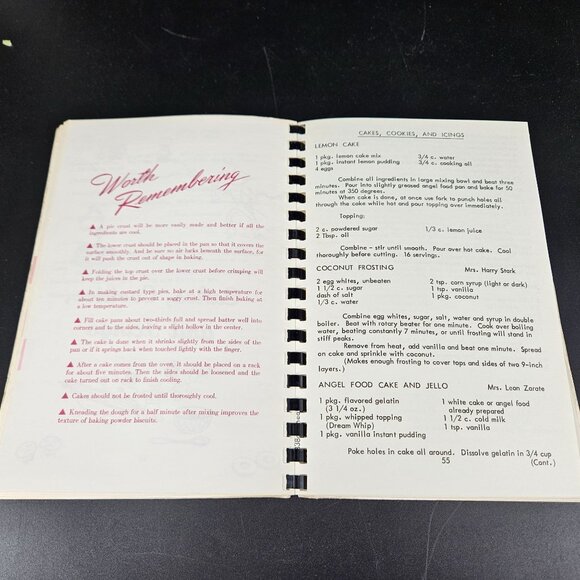 Worth
Remembering
▲ A pie crust will be more easily made and better if all the
ingredients are cool.
▲ The lower crust should be placed in the pan so that it covers the
surface smoothly. And be sure no air lurks beneath the surface, for
it will push the crust out of shape in baking.
▲ Folding the top crust over the lower crust before crimping will
keep the juices in the pie.
▲ In making custard type pies, bake at a high temperature for
about ten minutes to prevent a soggy crust. Then finish baking at
a low temperature.
▲ Fill cake pans about two-thirds full and spread batter well into
corners and to the sides, leaving a slight hollow in the center.
▲ The cake is done when it shrinks slightly from the sides of the
pan or if it springs back when touched lightly with the finger.
▲ After a cake comes from the oven, it should be placed on a rack
for about five minutes. Then the sides should be loosened and the
cake turned out on rack to finish cooling.
▲ Cakes should not be frosted until thoroughly cool.
▲ Kneading the dough for a half minute after mixing improves the
texture of baking powder biscuits.
CAKES, COOKIES, AND ICINGS
LEMON CAKE
1 pkg. lemon cake mix 3/4 c. water
1 pkg. instant lemon pudding 3/4 c. cooking oil
4 eggs
Combine all ingredients in large mixing bowl and beat three
minutes. Pour into slightly greased angel food pan and bake for 50
minutes at 350 degrees.
When cake is done, at once use fork to punch holes all
through the cake while hot and pour topping over immediately.
Topping:
2 c. powdered sugar 1/3 c. lemon juice
2 Tbsp. oil
Combine - stir until smooth. Pour over hot cake. Cool
thoroughly before cutting. 16 servings.
COCONUT FROSTING Mrs. Harry Stark
2 egg whites, unbeaten 2 tsp. corn syrup (light or dark)
1 1/2 c. sugar 1 tsp. vanilla
dash of salt 1 pkg. coconut
1/3 c. water
Combine egg whites, sugar, salt, water and syrup in double
boiler. Beat with rotary beater for one minute. Cook over boiling
water, beating constantly 7 minutes, or until frosting will stand in
stiff peaks.
Remove from heat, add vanilla and beat one minute. Spread
on cake and sprinkle with coconut.
(Makes enough frosting to cover tops and sides of two 9-inch
layers.)
ANGEL FOOD CAKE AND JELLO Mrs. Leon Zarate
1 pkg. flavored gelatin 1 white cake or angel food
(3 1/4 oz.) already prepared
1 pkg. whipped topping 1 1/2 c. cold milk
(Dream Whip) 1 tsp. vanilla
1 pkg. vanilla instant pudding
Poke holes in cake all around. Dissolve gelatin in 3/4 cup
55 (Cont.)